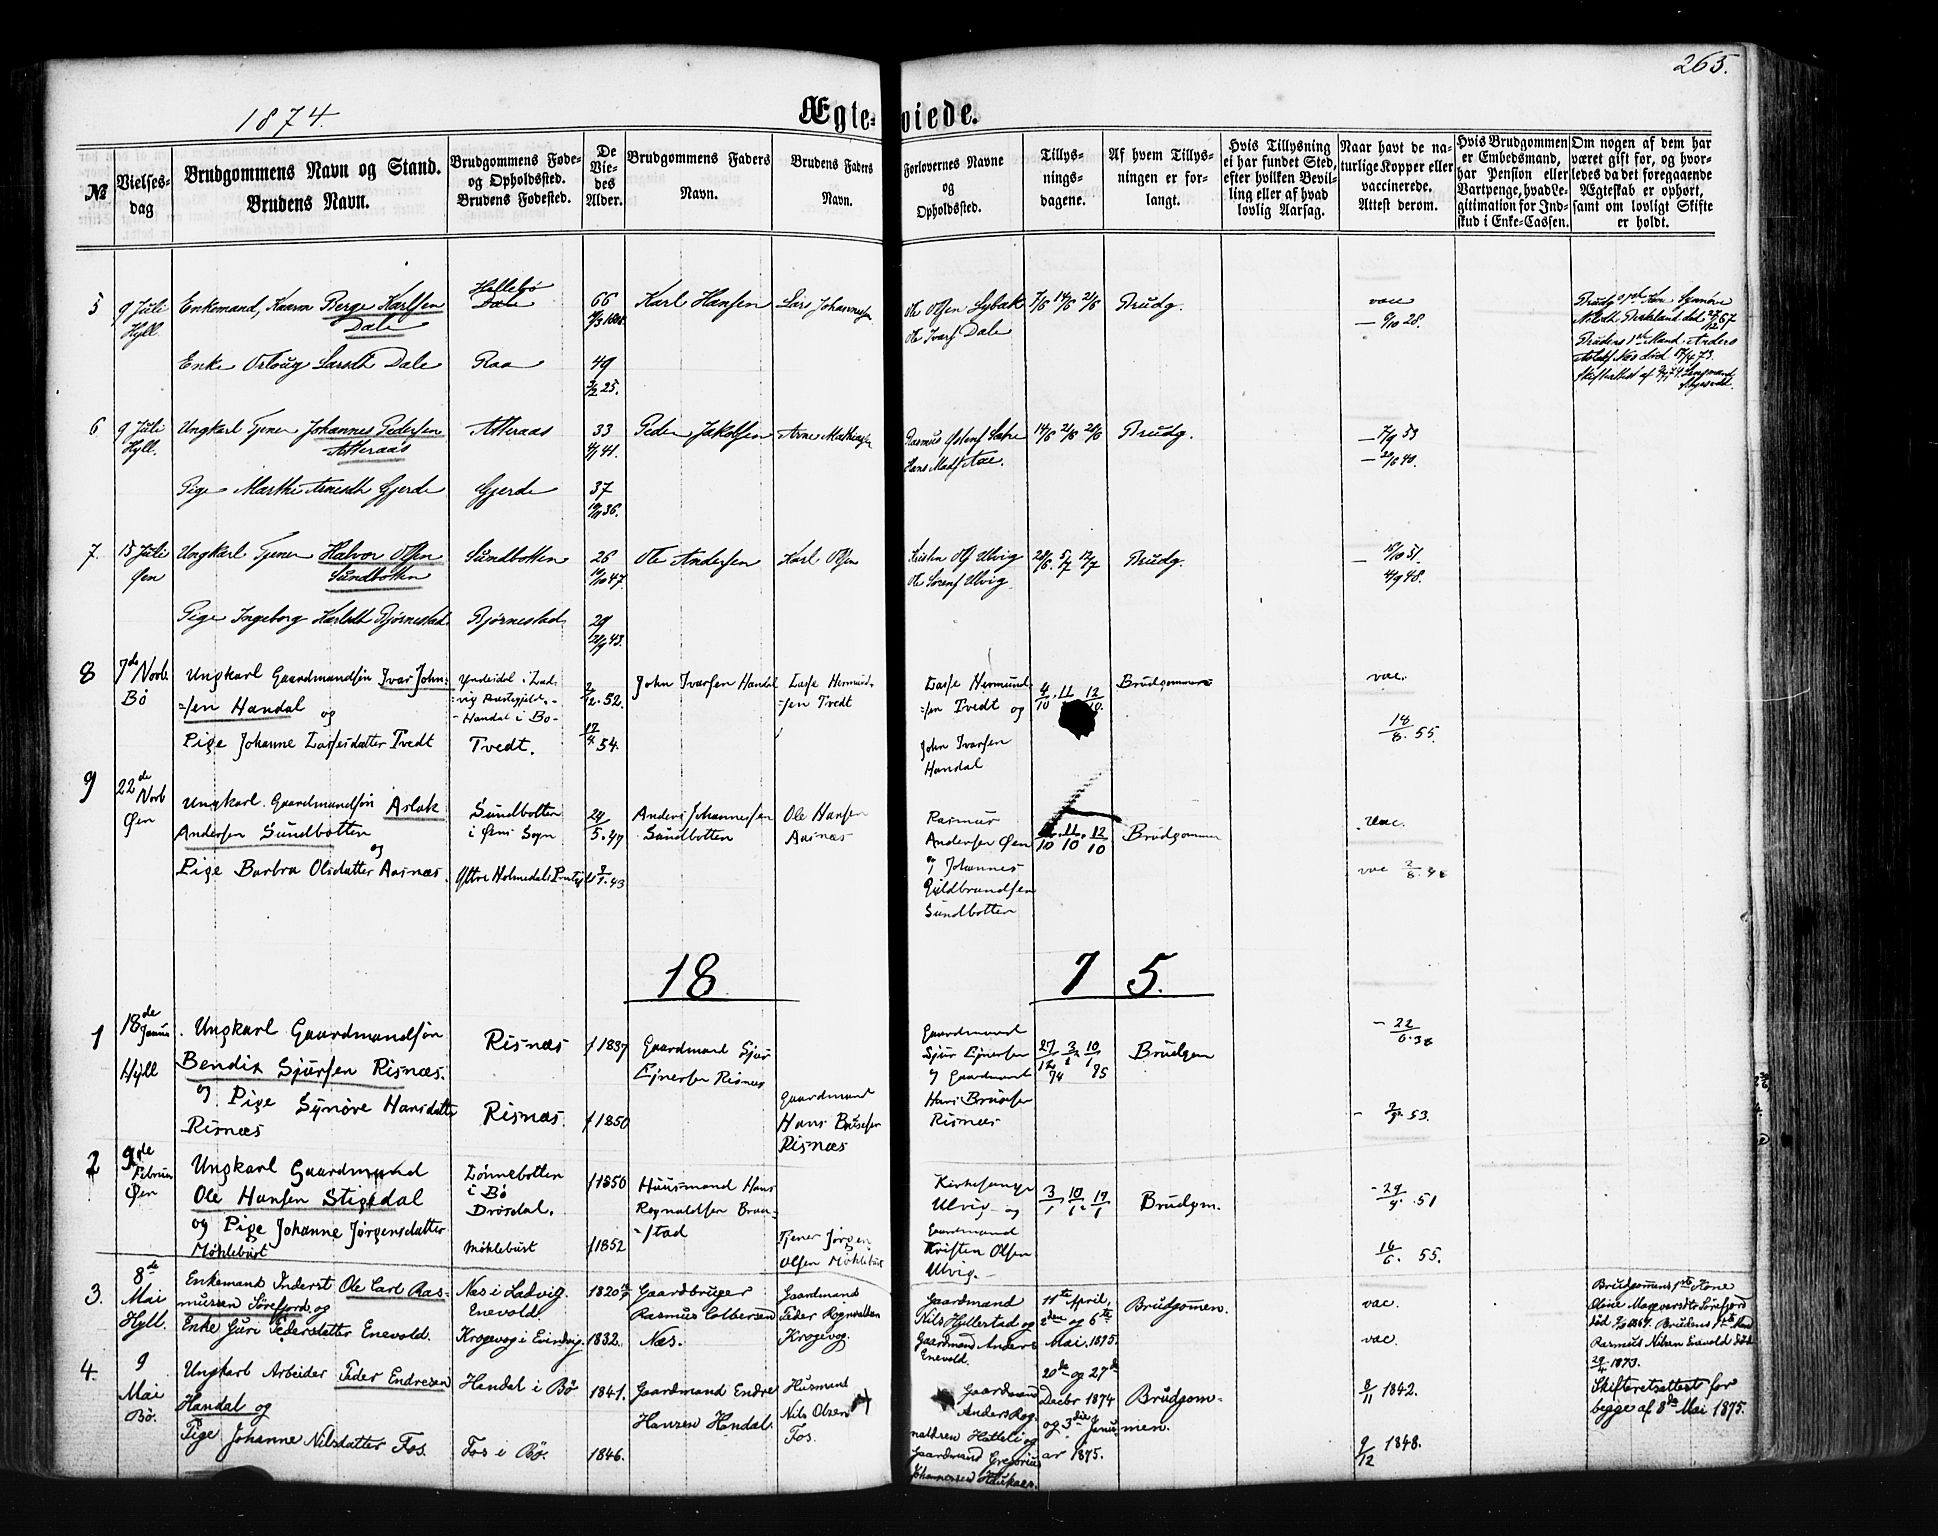 263.
1874.
Ægte-viede.
№
Vielses-
dag
Brudgommens Navn og Stand.
Brudens Navn.
Brudgommens Føde-
og Opholdssted.
Brudens Fødested.
De
Vie-
des
Alder.
Brudgommens Faders
Navn.
Brudens Faders
Navn.
Forlovernes Navne
og
Opholdssted.
Tillys-
nings-
dagene.
Af hvem Tillys-
ningen er for-
langt.
Hvis Tillysning
ei har fundet Sted,
efter hvilken Bevil-
ling eller af hvad
lovlig Aarsag.
Naar havt de na-
turlige Kopper eller
vaccinerede.
Attest derom.
Hvis Brudgommen
er Embedsmand,
har Pension eller
Vartpenge, hvad Le-
gitimation for Ind-
skud i Enke-Cassen.
Om nogen af dem har
været gift for, og hvor-
ledes da det foregaaende
Ægteskab er ophørt,
samt om lovligt Skifte
er holdt.
5
9 Juli
Hyll.
Enkemand, Kaarm Berge Karlsen
Dale
Enke Ortoug Larsdt Dale
Hellebø
Dale
Raa
66
49
2/2 25.
Karl Hansen
Lars Johannesen
Ole Olsen Sybak
Ole Ivars Dale
7/6 14/6 21/6
Brudg.
vac
— 9/10 28.
6
9 Juli
Hyll.
Ungkarl Tjener Johannes Pedersen
Atteraas
Pige Marthe Arnesdt Gjerde
Atteraas
Gjerde
33
4/1 41.
37
Peder Jakobsen
Arne Mathiasen
Rasmus Østens Sætre
Hans Mads Aae.
14/6 21/6 28/6
Brudg.
— 7/9 53
— 20/6 40.
7.
15 Juli
Øen
Ungkarl Tjener Halvor Olsen
Sundbotten
Pige Ingeborg Karlsdt Bjørnestad.
Sundbotten
Bjørnestad.
26
10/10 47.
29
Ole Andersen
Karl Olsen
Kristen Ols Ulvig
Ole Sørens Ulvig.
28/6 5/7 12/7
Brudg.
— 15/10 51.
4/9 48.
8
7de Novb.
Bø
Ungkarl Gaardmandsøn Ivar John-
=sen Handal og
Pige Johanne Lassesdatter Tvedt
Yndeidal i Lad-
vig Præstegjeld.-
- Handal i Bø-
Tvedt.
2/12. 52.
17/4 54.
John Ivarsen Handal
Lasse Hermund-
=sen Tvedt
Lasse Hermund-
=sen Tvedt og
John Ivarsen
Handal
4/10. 11/10 12/10.
Brudgommen
vac.
18/8. 55.
9
22de Novb
Øen
Ungkarl. Gaardmandsøn Aslak
Andersen Sundbotten
og
Pige Barbra Olsdatter Aasnæs.
Sundbotten
i Øens Sogn
Yttre Holmedals Præstegj
24/5. 47
Anders Johannesen
Sandbotten
Ole Hansen
Aasnæs
Rasmus
Andersen Øen
og Johannes
Guldbrandsen
Sundbotten
11/10 12/10
Brudgommen
Vac.
vac 2/8. 48
1875.
1
18de Januar
Hyll
Ungkarl Gaardmandsøn
Bendix Sjursen Risnæs.
og Pige Synøve Hansdatter
Risnæs
Risnæs
Risnæs.
f 1837
f 1850
Gaardmand Sjur
Ejnersen Risnæs
Gaardmand
Hans Brusesen
Risnæs
Gaardmand
Sjur Ejnersen
og Gaardmand
Hans Brusesen
Risnæs
27/12 3/1 10/1
74 85
Brudgom
- 22/6. 38
- 2/9. 53.
2
9de Februar
Øen
Ungkarl Gaardmand
Ole Hansen Stigedal
og Pige Johanne Jørgensdatter
Møhlebust
Lønnebotten
i Bø
Drøsdal.
Møhlebust
f 1850
f 1852
Huusmand Hans
Rognaldsen Brau-
-stad
Tjener Jørgen
Olsen Møhlebust
Kirkesanger
Ulvig og
Gaardmand
Kristen Olsen
Ulvig.
3/1 10/1 17/1
Brudgm.
- 29/9. 51
16/6. 55.
3.
8de
Mai
Hyll.
Enkemand Inderst Ole Carl Ras-
mussen Sørefjord og
Enke Guri Pedersdatter Enevold.
Næs i Ladvig.
Enevold.
Krogevog i Evindvig.
1820
1832.
Gaardbruger
Rasmus Colbensen
Næs.
Gaardmand
Peder Rognvaldsen
Krogevog.
Gaardmand
Nils Hyllestad og
Gaardmand Anders
Enevold.
11te April,
2den og 6te
Mai. 1875.
Brudgommen.
vac.
vac.
Brudgommens 1ste Kone
Oline Mogensdtr Sørefjord
død 1867. Brudens 1ste Mand
Rasmus Nilsen Enevold død
29/4 1873.
Skifteretsattest for
begge af 8de Mai 1875.
4.
9
Mai
Bø.
Ungkarl Arbeider Peder Endresen
Handal og
Pige Johanne Nilsdatter Fos.
Handal i Bø
Fos i Bø.
1841.
1846.
Gaardmand Endre
Hansen Handal.
Husmand
Nils Olsen
Fos.
Gaardmand
Anders Rog-
naldsen Hatleli og
Gaardmand Gregorius
Johannessen Haukaas.
20de og 27de
Decbr 1874
og 3die Janu-
ar 1875.
Brudgom-
men.
8/11 1842.
9/12 1848.